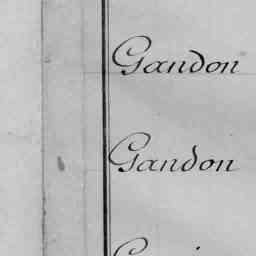 Gandon
Gandon